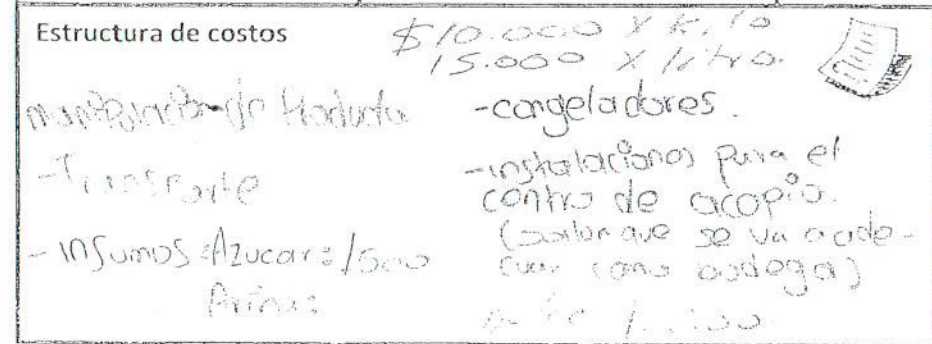 Estructura de costos
$10.000 X kilo
15.000 X litro.
Producto
-Transporte
- Insumos: Azucar: 1500
Arina:
-congeladores.
-instalaciones para el
centro de acopio.
(salon que se va a ade-
cuar como bodega)